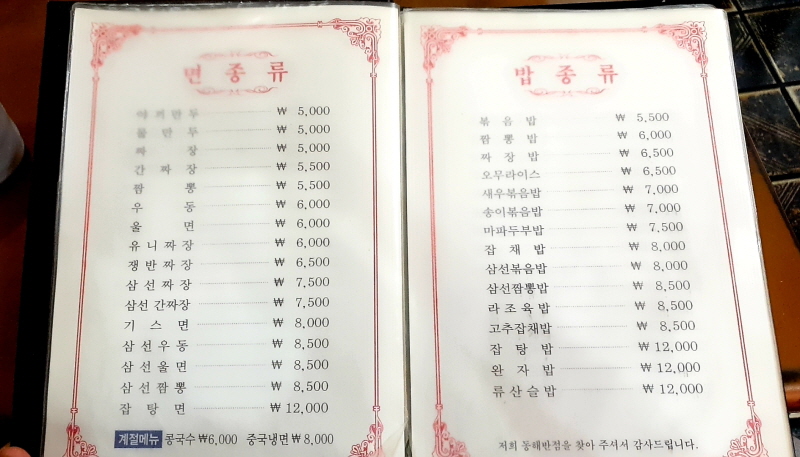 면종류
야끼만두 ₩ 5,000
물만두 ₩ 5,000
짜장 ₩ 5,000
간짜장 ₩ 5,500
짬뽕 ₩ 5,500
우동 ₩ 6,000
울면 ₩ 6,000
유니짜장 ₩ 6,000
쟁반짜장 ₩ 6,500
삼선짜장 ₩ 7,500
삼선간짜장 ₩ 7,500
기스면 ₩ 8,000
삼선우동 ₩ 8,500
삼선울면 ₩ 8,500
삼선짬뽕 ₩ 8,500
잡탕면 ₩ 12,000
계절메뉴 콩국수 ₩6,000 중국냉면 ₩8,000
밥종류
볶음밥 ₩ 5,500
짬뽕밥 ₩ 6,000
짜장밥 ₩ 6,500
오무라이스 ₩ 6,500
새우볶음밥 ₩ 7,000
송이볶음밥 ₩ 7,000
마파두부밥 ₩ 7,500
잡채밥 ₩ 8,000
삼선볶음밥 ₩ 8,000
삼선짬뽕밥 ₩ 8,500
라조육밥 ₩ 8,500
고추잡채밥 ₩ 8,500
잡탕밥 ₩ 12,000
완자밥 ₩ 12,000
류산슬밥 ₩ 12,000
저희 동해반점을 찾아 주셔서 감사드립니다.